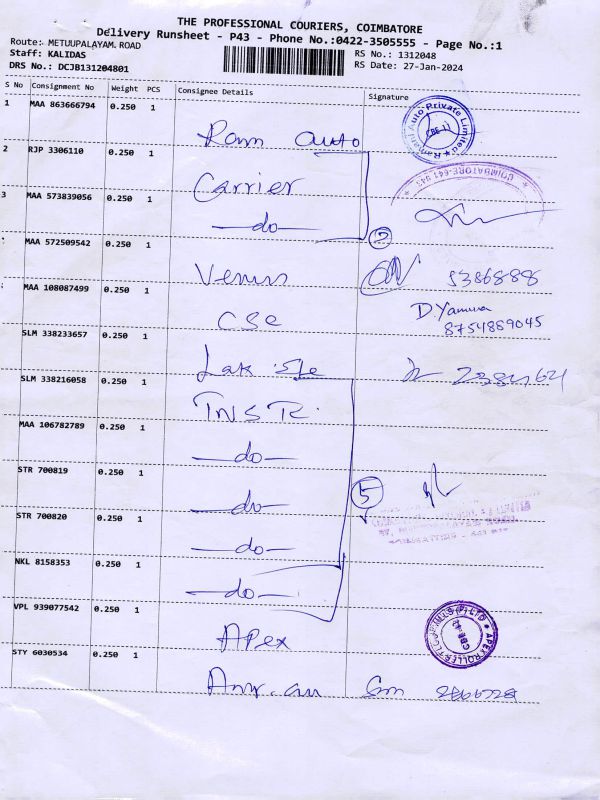 THE PROFESSIONAL COURIERS, COIMBATORE
Delivery Runsheet - P43 - Phone No.:0422-3505555 - Page No.:1
Route: METUUPALAYAM.ROAD
RS No.: 1312048
Staff: KALIDAS
RS Date: 27-Jan-2024
DRS No.: DCJB131204801
S No Consignment No Weight PCS Consignee Details Signature
1 MAA 863666794 0.250 1 Ram auto
2 RJP 3306110 0.250 1 Carrier
COIMBATORE-641 043
3 MAA 573839056 0.250 1 —do—
MAA 572509542 0.250 1 Venus 5386888
MAA 108087499 0.250 1 CSC D. Yamuna
8754889045
SLM 338233657 0.250 1 Lak
SLM 338216058 0.250 1 TNSTC.
MAA 106782789 0.250 1 —do—
STR 700819 0.250 1 —do— 5
STR 700820 0.250 1 —do—
NKL 8158353 0.250 1 —do—
VPL 939077542 0.250 1 Apex
STY 6030534 0.250 1